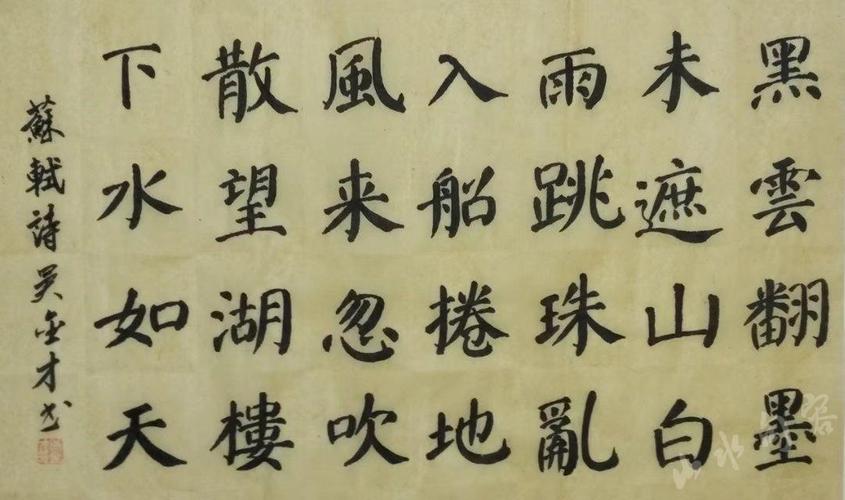 黑雲翻墨
未遮山白
雨跳珠亂
入船捲地
風来忽吹
散望湖樓
下水如天
蘇軾詩吴金才书